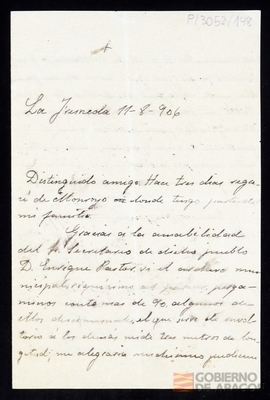 P/3052/148
La Juncosa 11-8-906
Distinguido amigo: Hace tres dias regre-
sé de donde tengo
mi familia.
Gracias á la amabilidad
del Sr. Secretario de dicho pueblo
D. Enrique Pastor, vi el archivo mu-
nicipal perga-
minos contó mas de 90, algunos de
ellos el que sirve de envol-
torio á los demás mide tres metros de lon-
gitud; me alegraria muchisimo pudiera
GOBIERNO
DE ARAGON